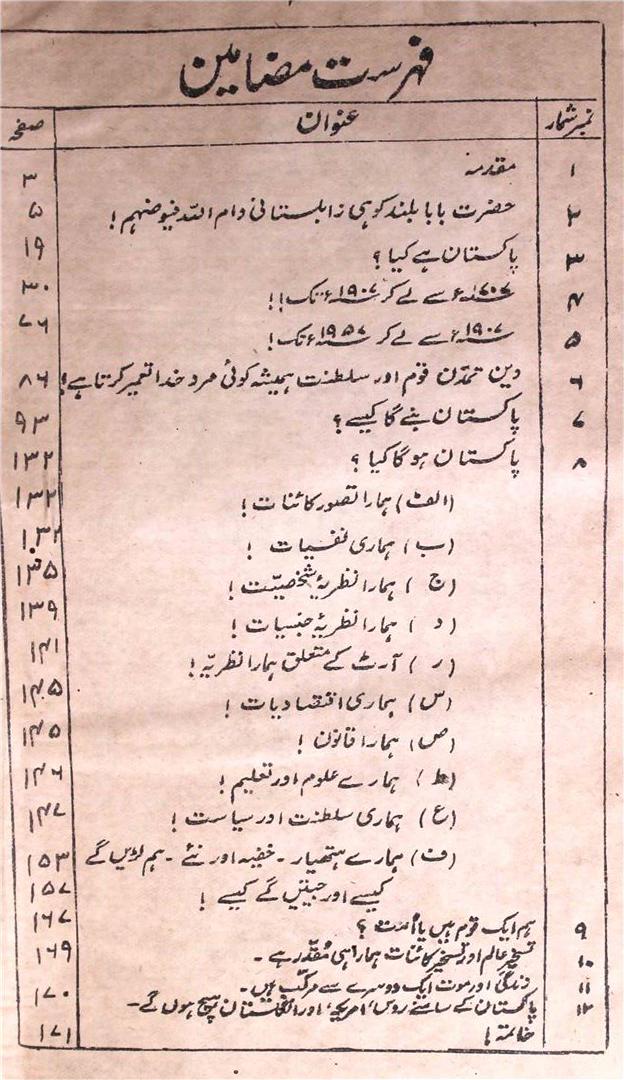 فہرست مضامین
نمبر شمار عنوان صفحہ
۱ مقدمہ ۳
۲ حضرت بابا بلند کوہی زابلستانی دام اللہ فیوضہم! ۵
۳ پاکستان ہے کیا؟ ۱۹
۴ ۱۷۰۷ء سے لے کر ۱۹۰۷ء تک!! ۳۰
۵ ۱۹۰۷ء سے لے کر ۱۹۵۷ء تک! ۷۶
۶ دین تمدّن قوم اور سلطنت ہمیشہ کوئی مردِ خدا تعمیر کرتا ہے! ۸۶
۷ پاکستان بنے گا کیسے؟ ۹۳
۸ پاکستان ہوگا کیا؟ ۱۳۲
(الف) ہمارا تصور کائنات! ۱۳۲
(ب) ہماری نفسیات! ۱۳۲
(ج) ہمارا نظریۂ شخصیّت! ۱۳۵
(د) ہمارا نظریۂ جنسیات! ۱۳۹
(ر) آرٹ کے متعلق ہمارا نظریّہ! ۱۴۱
(س) ہماری اقتصادیات! ۱۴۵
(ص) ہمارا قانون! ۱۴۵
(ط) ہمارے علوم اور تعلیم! ۱۴۶
(ع) ہماری سلطنت اور سیاست! ۱۴۷
(ف) ہمارے ہتھیار۔ خفیہ اور نئے۔ ہم لڑیں گے ۱۵۳
کیسے اور جیتیں گے کیسے! ۱۵۷
۹ ہم ایک قوم ہیں یا اُمت؟ ۱۶۷
۱۰ تسخیرِ عالم اور تسخیرِ کائنات ہمارا ہی مُقدّر ہے۔ ۱۶۹
۱۱ زندگی اور موت ایک دوسرے سے مرکّب ہیں۔ ۱۷۰
۱۲ پاکستان کے سامنے روس، امریکہ، اور انگلستان ہیچ ہوں گے۔
خاتمہ! ۱۷۱